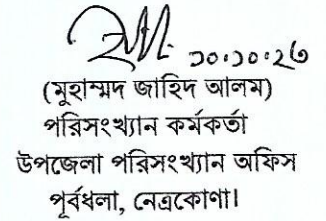 ১০.১০.২৩
(মুহাম্মদ জাহিদ আলম)
পরিসংখ্যান কর্মকর্তা
উপজেলা পরিসংখ্যান অফিস
পূর্বধলা, নেত্রকোণা।